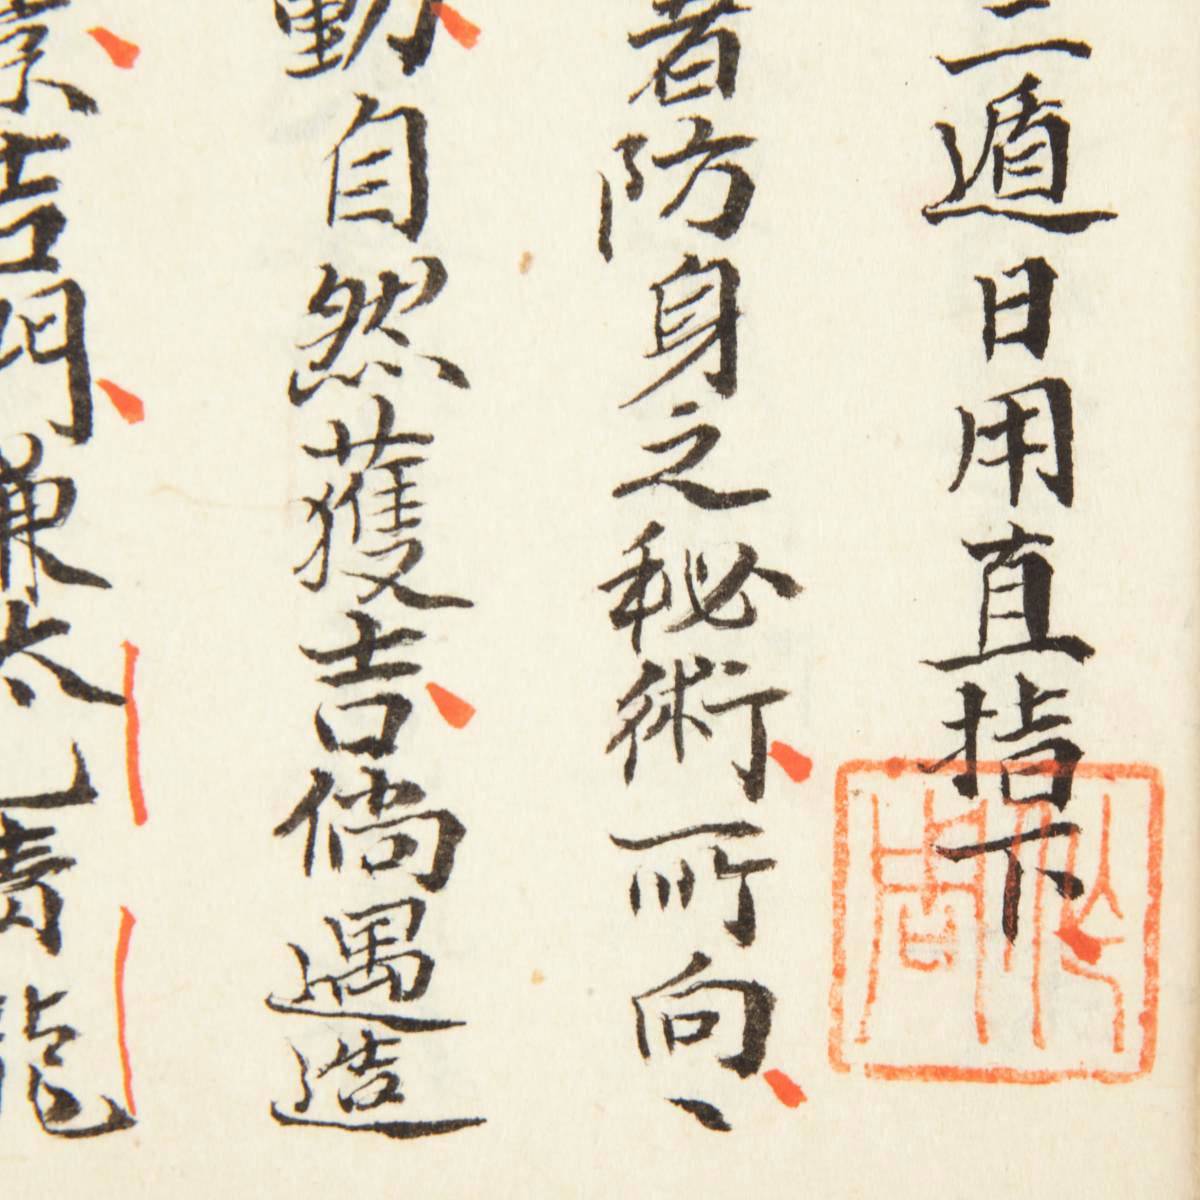 三遁日用直指下
者防身之秘術所向〻
動自然獲吉倘遇造
吉門兼太乙青龍